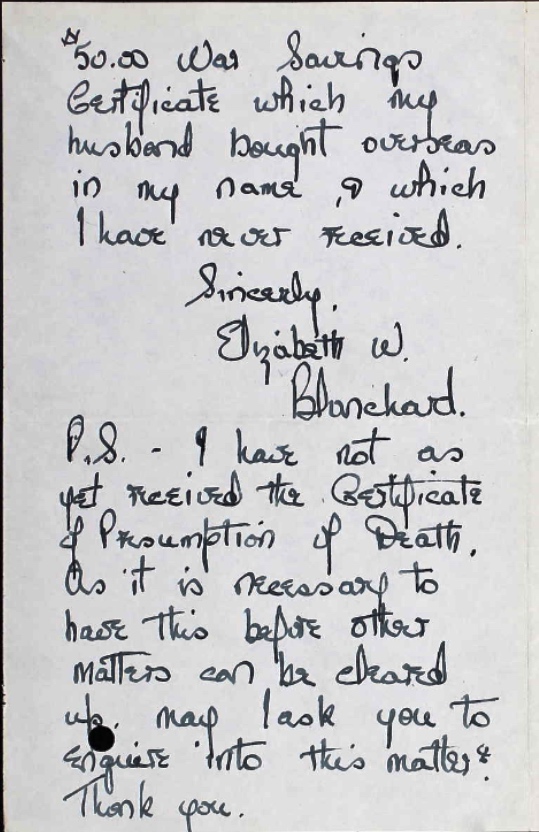 $50.00 War Savings
Certificate which my
husband bought overseas
in my name, & which
I have never received.
Sincerly,
Elizabeth W.
Blanchard.
P.S. - I have not as
yet received the Certificate
of Presumption of Death.
As it is necessary to
have this before other
matters can be cleared
up, may I ask you to
enquire into this matter?
Thank you.